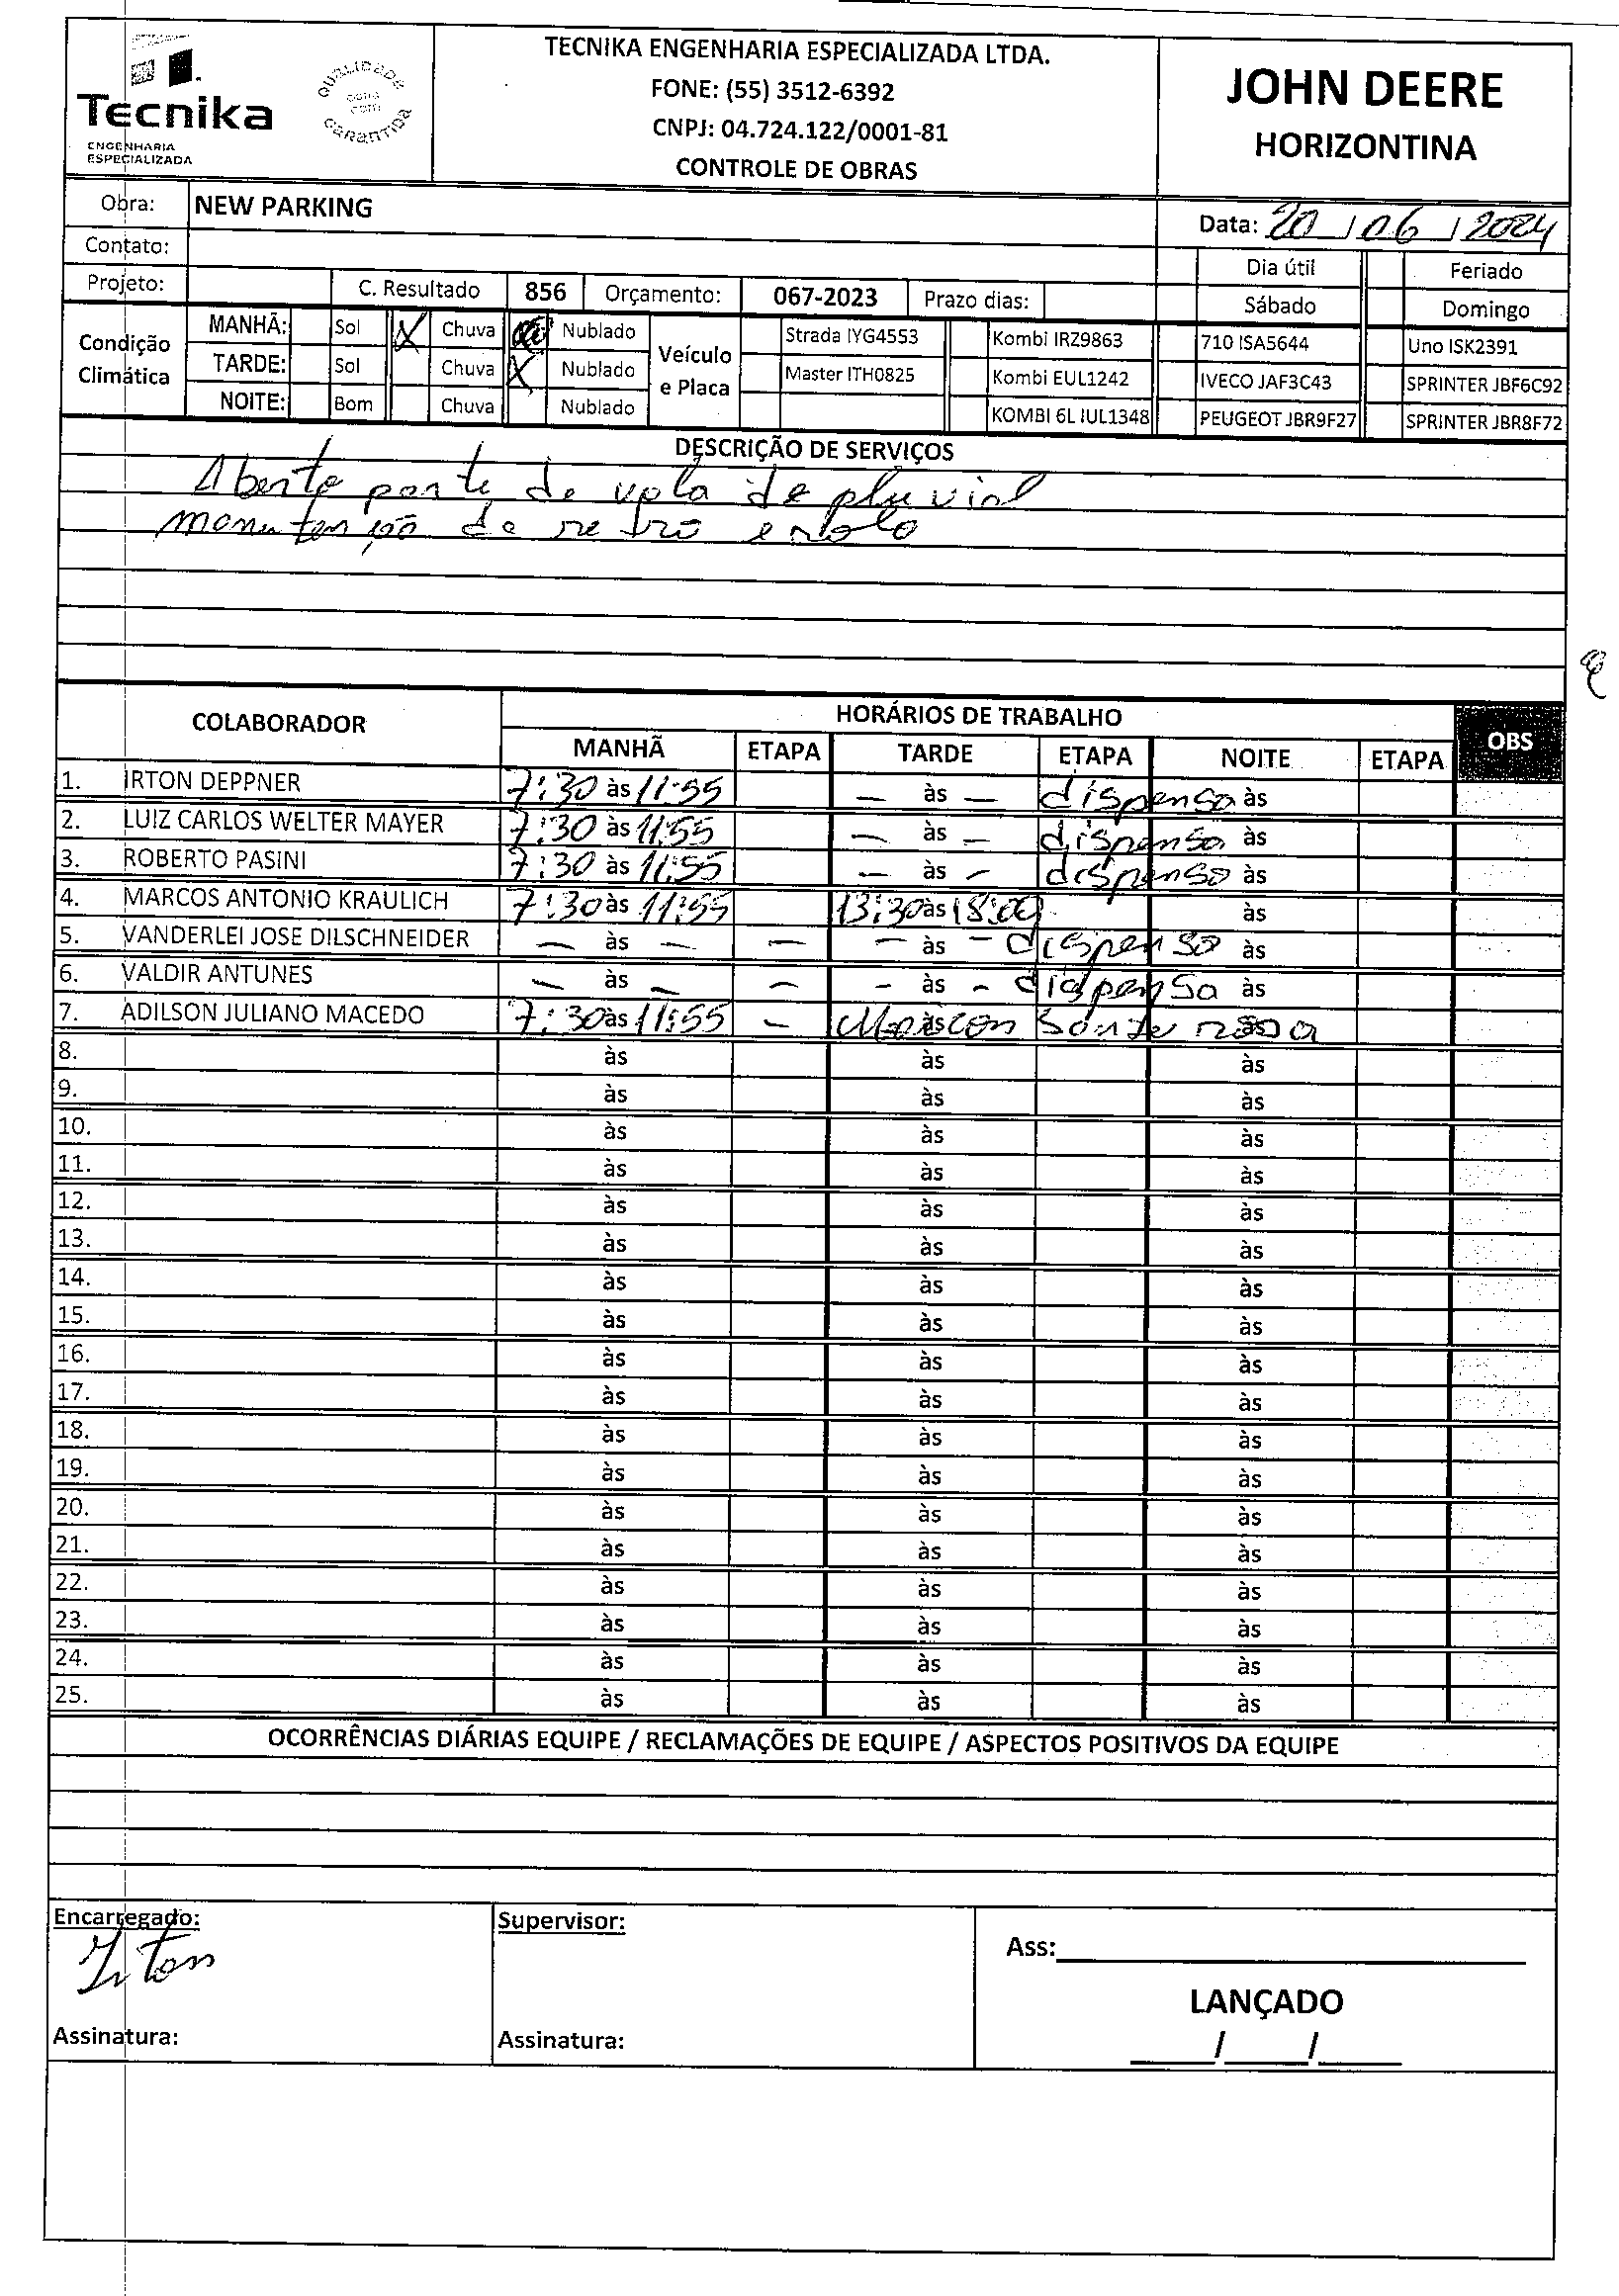 Tecnika
ENGENHARIA
ESPECIALIZADA
QUALIDADE
COM
GARANTIDA
TECNIKA ENGENHARIA ESPECIALIZADA LTDA.
FONE: (55) 3512-6392
CNPJ: 04.724.122/0001-81
CONTROLE DE OBRAS
JOHN DEERE
HORIZONTINA
Obra: NEW PARKING
Data: 20 / 06 / 2024
Contato:
Dia útil Feriado
Projeto: C. Resultado 856 Orçamento: 067-2023 Prazo dias: Sábado Domingo
Condição Climática
MANHÃ: Sol X Chuva Nublado
TARDE: Sol Chuva X Nublado
NOITE: Bom Chuva Nublado
Veículo e Placa
Strada IYG4553 Kombi IRZ9863 710 ISA5644 Uno ISK2391
Master ITH0825 Kombi EUL1242 IVECO JAF3C43 SPRINTER JBF6C92
KOMBI 6L IUL1348 PEUGEOT JBR9F27 SPRINTER JBR8F72
DESCRIÇÃO DE SERVIÇOS
Aberto parte de vala de pluvial
manutenção de retro
COLABORADOR HORÁRIOS DE TRABALHO OBS
MANHÃ ETAPA TARDE ETAPA NOITE ETAPA
1. IRTON DEPPNER 7:30 às 11:55 — às — dispensa às
2. LUIZ CARLOS WELTER MAYER 7:30 às 11:55 — às — dispensa às
3. ROBERTO PASINI 7:30 às 11:55 — às — dispenso às
4. MARCOS ANTONIO KRAULICH 7:30 às 11:55 13:30 às 18:00 às
5. VANDERLEI JOSE DILSCHNEIDER — às — — — às — dispenso às
6. VALDIR ANTUNES — às — — — às — dispensa às
7. ADILSON JULIANO MACEDO 7:30 às 11:55 — às às
8. às às às
9. às às às
10. às às às
11. às às às
12. às às às
13. às às às
14. às às às
15. às às às
16. às às às
17. às às às
18. às às às
19. às às às
20. às às às
21. às às às
22. às às às
23. às às às
24. às às às
25. às às às
OCORRÊNCIAS DIÁRIAS EQUIPE / RECLAMAÇÕES DE EQUIPE / ASPECTOS POSITIVOS DA EQUIPE
Encarregado:
Irton
Assinatura:
Supervisor:
Assinatura:
Ass:
LANÇADO
/ /